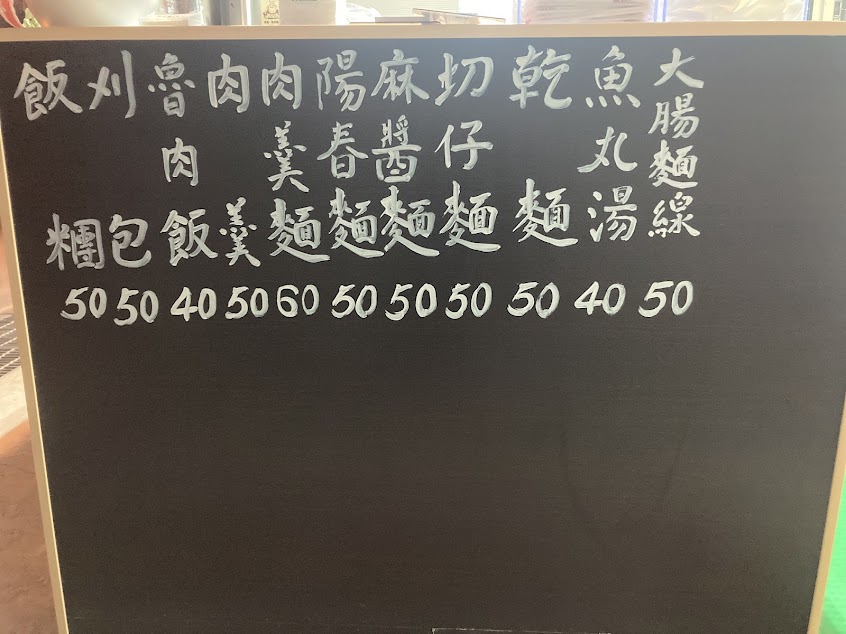 大腸麵線 50
魚丸湯 40
乾麵 50
切仔麵 50
麻醬麵 50
陽春麵 50
肉羹麵 60
肉羹 50
魯肉飯 40
刈包 50
飯糰 50